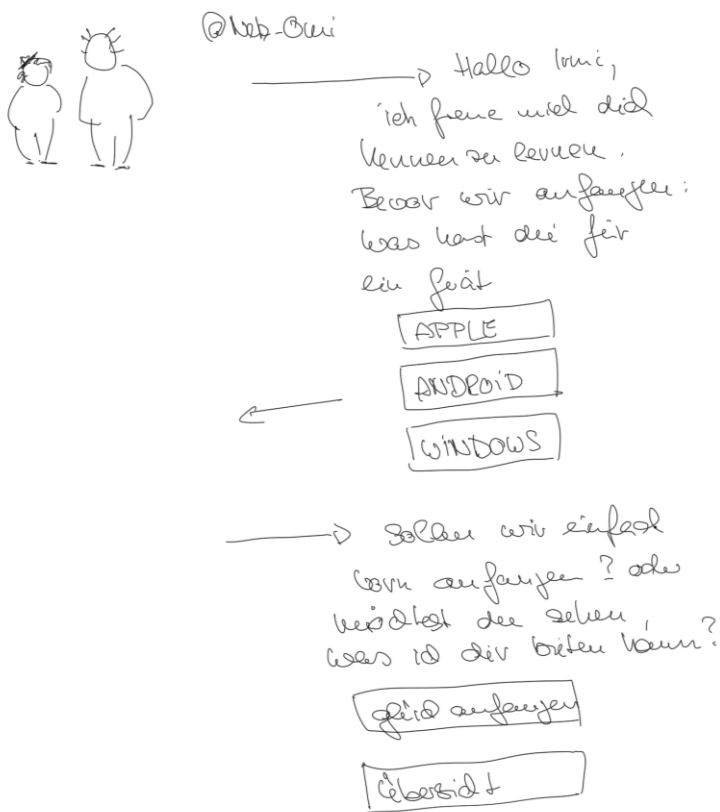 @Web-Omi
Hallo Irmi,
ich freue mich dich
kennen zu lernen.
Bevor wir anfangen:
was hast du für
ein Gerät
APPLE
ANDROID
WINDOWS
Sollen wir einfach
vorn anfangen? oder
möchtest du sehen,
was ich dir bieten kann?
gleich anfangen
Übersicht